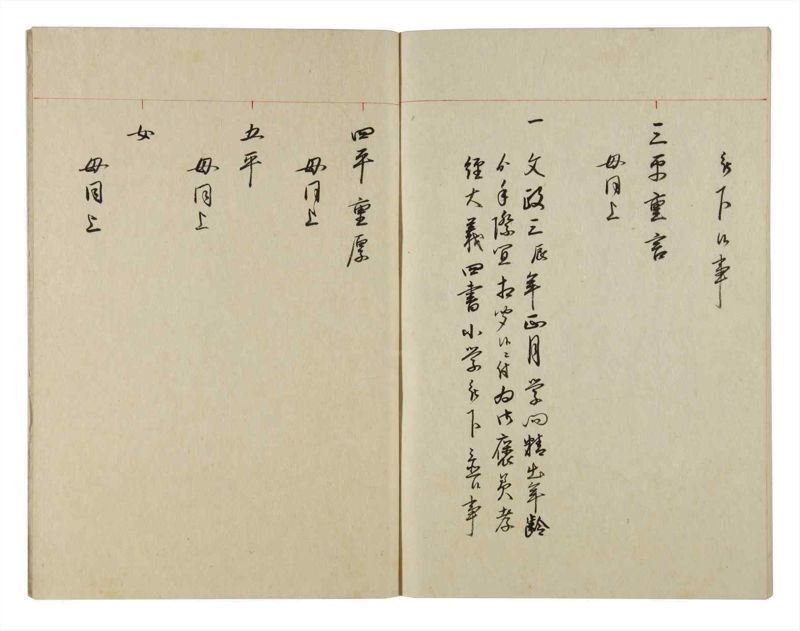 被下候事
三平重言
母同上
一文政三辰年正月学問精出年齢
分手際宜相聞候ニ付為御褒美孝
経大義四書小学被下置候事
四平重厚
母同上
五平
母同上
女
母同上